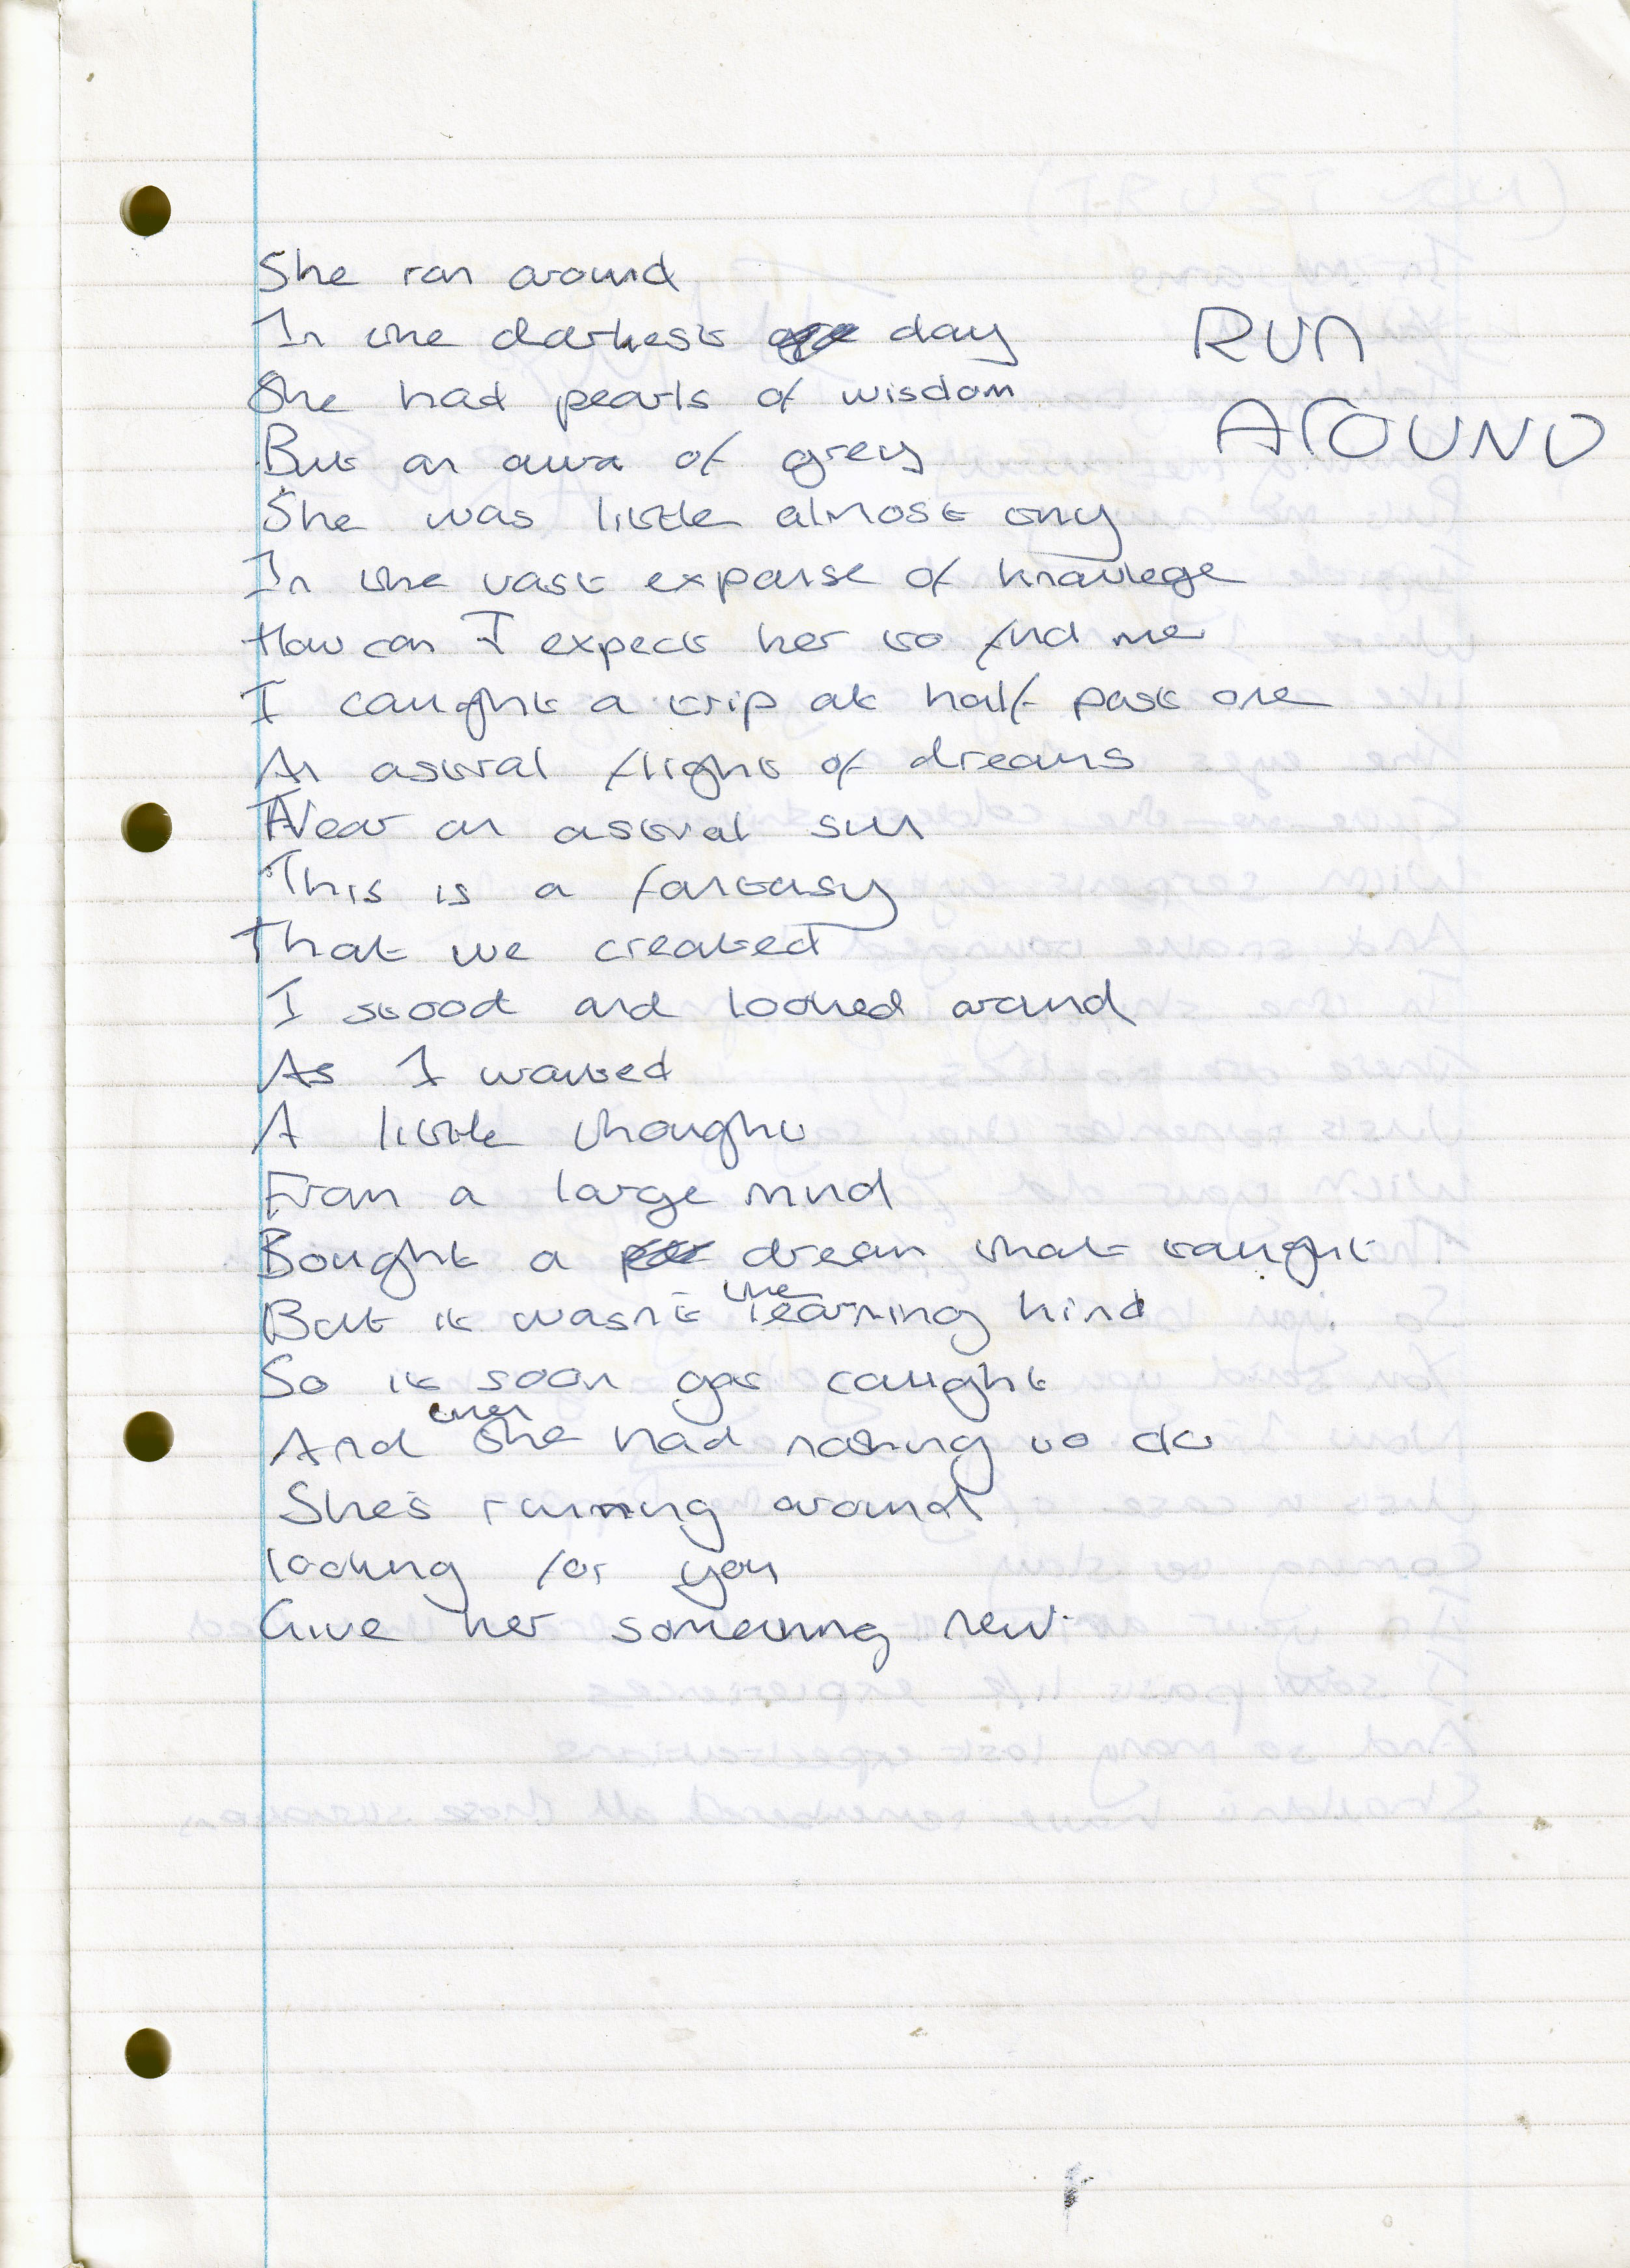 RUN
AROUND
She ran around
In the darkest day
She had pearls of wisdom
But an aura of grey
She was little almost tiny
In the vast expanse of knowlege
How can I expect her to find me
I caught a trip at half past one
An astral flight of dreams
Near an astral sun
This is a fantasy
That we created
I stood and looked around
As I waited
A little thought
From a large mind
Bought a dream that taught
But it wasn't the learning kind
So it soon got caught
And then she had nothing to do
She's running around
looking for you
Give her something new